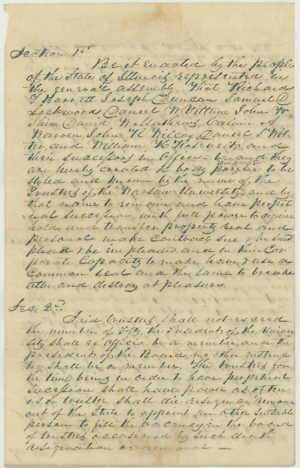 Section 1st
Be it enacted by the people
of the State of Illinois represented in
the general assembly That Richard
Joseph Duncan Samuel D
Lockwood Daniel John
David
Warren John Daniel S
and William and
their successors in office be and they
are hereby created a body to be
styled and known by the name of the
Trustees of the Warsaw University and by
that name to remain and have perpet
ual succession with full power to acquire
hold and transfer property real and
personal make contracts sue and be sued
plead and be impleaded and in their Cor
porate Capacity to make have & use a
common seal and the same to break
alter and destroy at pleasure.
Sec. 2nd
trustees shall not exceed
the number of fifty the President of the
sity shall ex officio be a member and the
president of the Board
shall be a member. The trustees for
the time being in order to have perpetual
succession shall have power as often
as a trustee shall die resign or remove
out of the State to appoint another suitable
person to fill the vacancy in the board
of trustees occasioned by such death
resignation or removal —